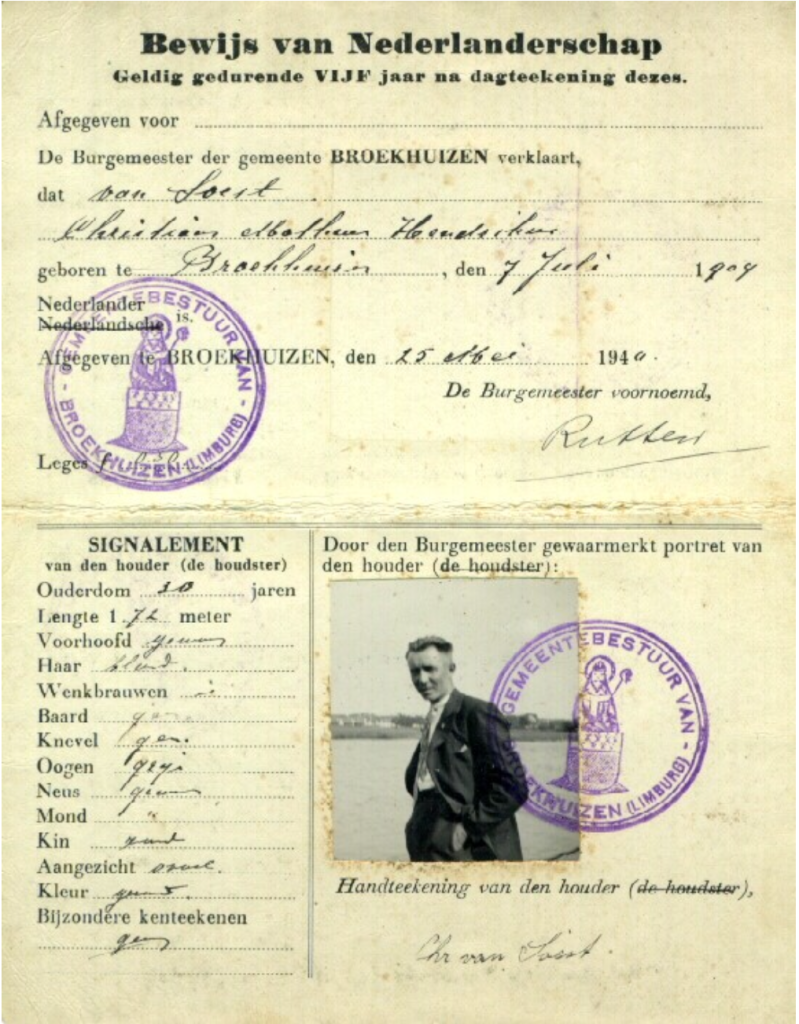 Bewijs van Nederlanderschap
Geldig gedurende VIJF jaar na dagteekening dezes.
Afgegeven voor
De Burgemeester der gemeente BROEKHUIZEN verklaart,
dat van Soest
Christiaan Hendrikus
geboren te Broekhuizen, den 7 Juli 1909
Nederlander
Nederlandsche is.
Afgegeven te BROEKHUIZEN, den 25 Mei 1940.
De Burgemeester voornoemd,
Rutten
Leges f
GEMEENTEBESTUUR VAN - BROEKHUIZEN (LIMBURG) -
SIGNALEMENT
van den houder (de houdster)
Ouderdom 30 jaren
Lengte 1.72 meter
Voorhoofd gewoon
Haar blond.
Wenkbrauwen
Baard geen
Knevel geen
Oogen grijs
Neus gewoon
Mond "
Kin rond
Aangezicht ovaal.
Kleur gezond
Bijzondere kenteekenen
geen
Door den Burgemeester gewaarmerkt portret van
den houder (de houdster):
GEMEENTEBESTUUR VAN - BROEKHUIZEN (LIMBURG) -
Handteekening van den houder (de houdster),
Chr van Soest.